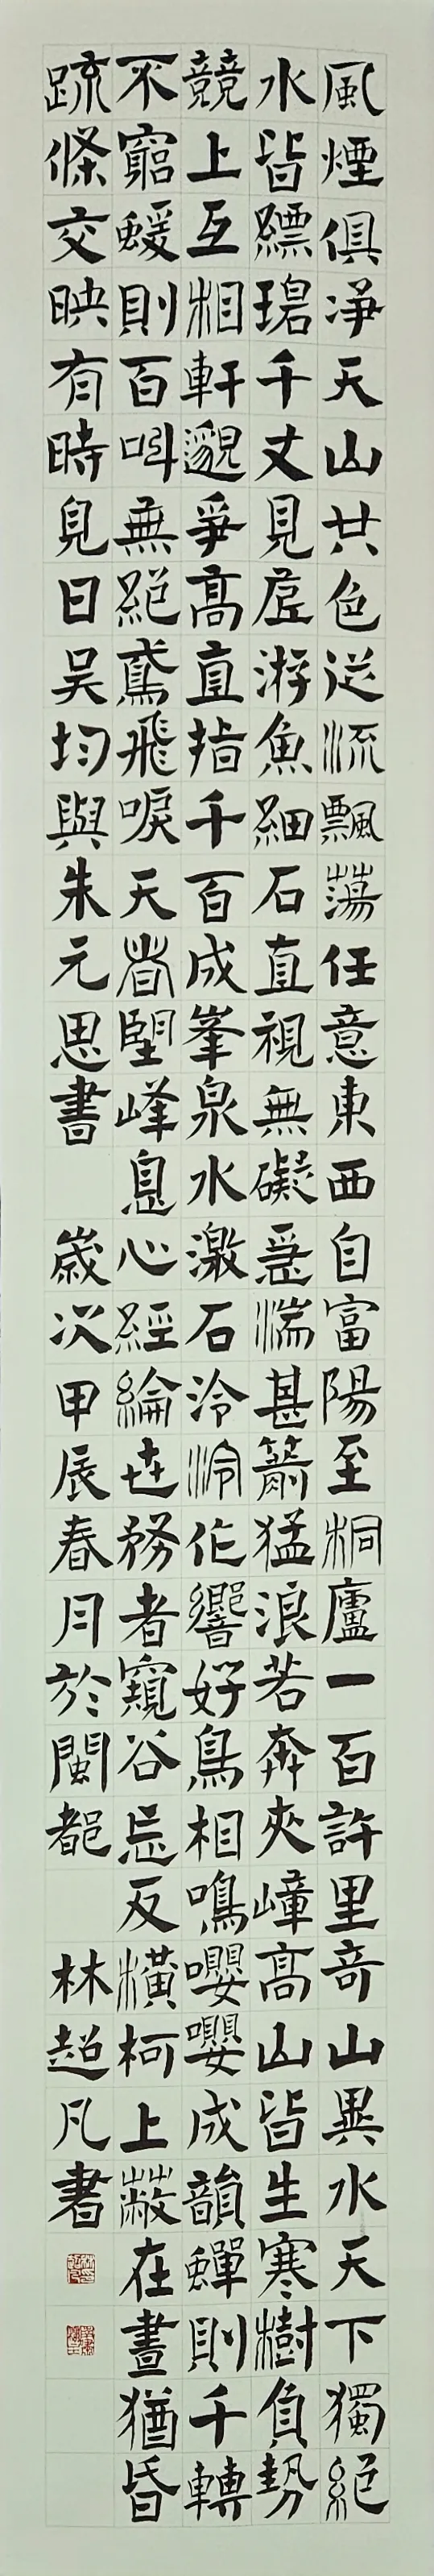 風煙俱淨天山共色從流飄蕩任意東西自富陽至桐廬一百許里奇山異水天下獨絕
水皆縹碧千丈見底游魚細石直視無礙急湍甚箭猛浪若奔夾嶂高山皆生寒樹負勢
競上互相軒邈爭高直指千百成峯泉水激石泠泠作響好鳥相鳴嚶嚶成韻蟬則千轉
不窮蝯則百叫無絕鳶飛唳天者望峰息心經綸世務者窺谷忘反橫柯上蔽在晝猶昏
疏條交映有時見日吳均與朱元思書 歲次甲辰春月於閩都 林超凡書